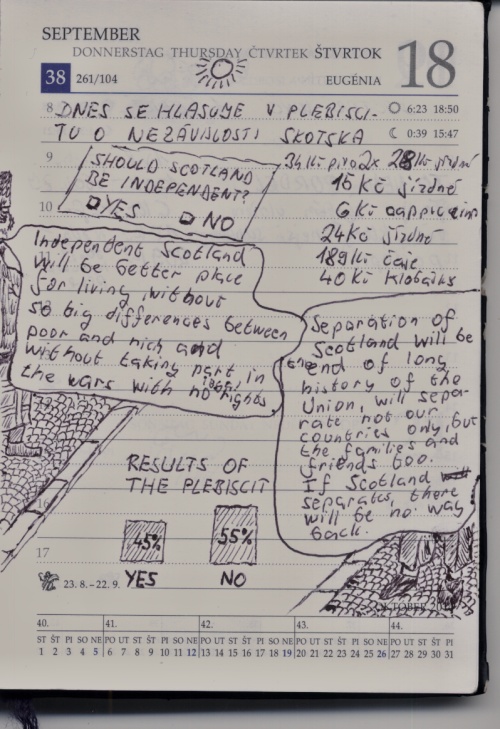 SEPTEMBER
DONNERSTAG THURSDAY ČTVRTEK ŠTVRTOK
18
38 261/104
EUGÉNIA
8 DNES SE HLASUJE V PLEBISCI-
6:23 18:50
TU O NEZÁVISLOSTI SKOTSKA
0:39 15:47
9
SHOULD SCOTLAND
BE INDEPENDENT?
YES NO
10
34 Kč pivo 2x 28 Kč jízdné
16 Kč jízdné
6 Kč
24 Kč jízdné
189 Kč čaje
40 Kč
Independent Scotland
will be better place
for living, without
so big differences between
poor and rich and
without taking part in
the wars with no legal rights
Separation of
Scotland will be
the end of long
history of the
Union, will sepa-
rate not our
countries only, but
the families and
friends too.
If Scotland
separates, there
will be no way
back.
RESULTS OF
THE PLEBISCIT
45% 55%
YES NO
17
23. 8. – 22. 9.
OKTOBER
40. 41. 42. 43. 44.
ST ŠT PI SO NE PO UT ST ŠT PI SO NE PO UT ST ŠT PI SO NE PO UT ST ŠT PI SO NE PO UT ST ŠT PI
1 2 3 4 5 6 7 8 9 10 11 12 13 14 15 16 17 18 19 20 21 22 23 24 25 26 27 28 29 30 31